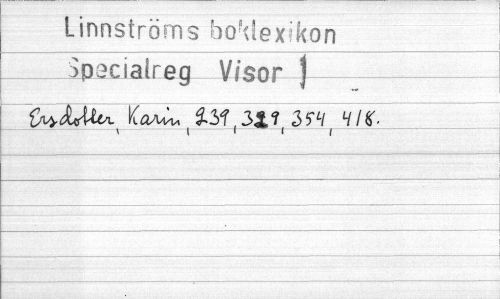 Linnströms boklexikon
Specialreg Visor 1
Ersdotter, Karin, 239, 329, 354, 418.